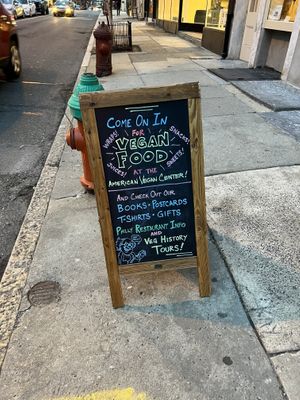 COME ON IN
FOR
WRAPS!
VEGAN
SNACKS!
FOOD
JUICES!
SWEETS!
AT THE
AMERICAN VEGAN CENTER!
AND CHECK OUT OUR
BOOKS • POSTCARDS
T-SHIRTS • GIFTS
PHILLY RESTAURANT INFO
AND
VEG HISTORY
TOURS!